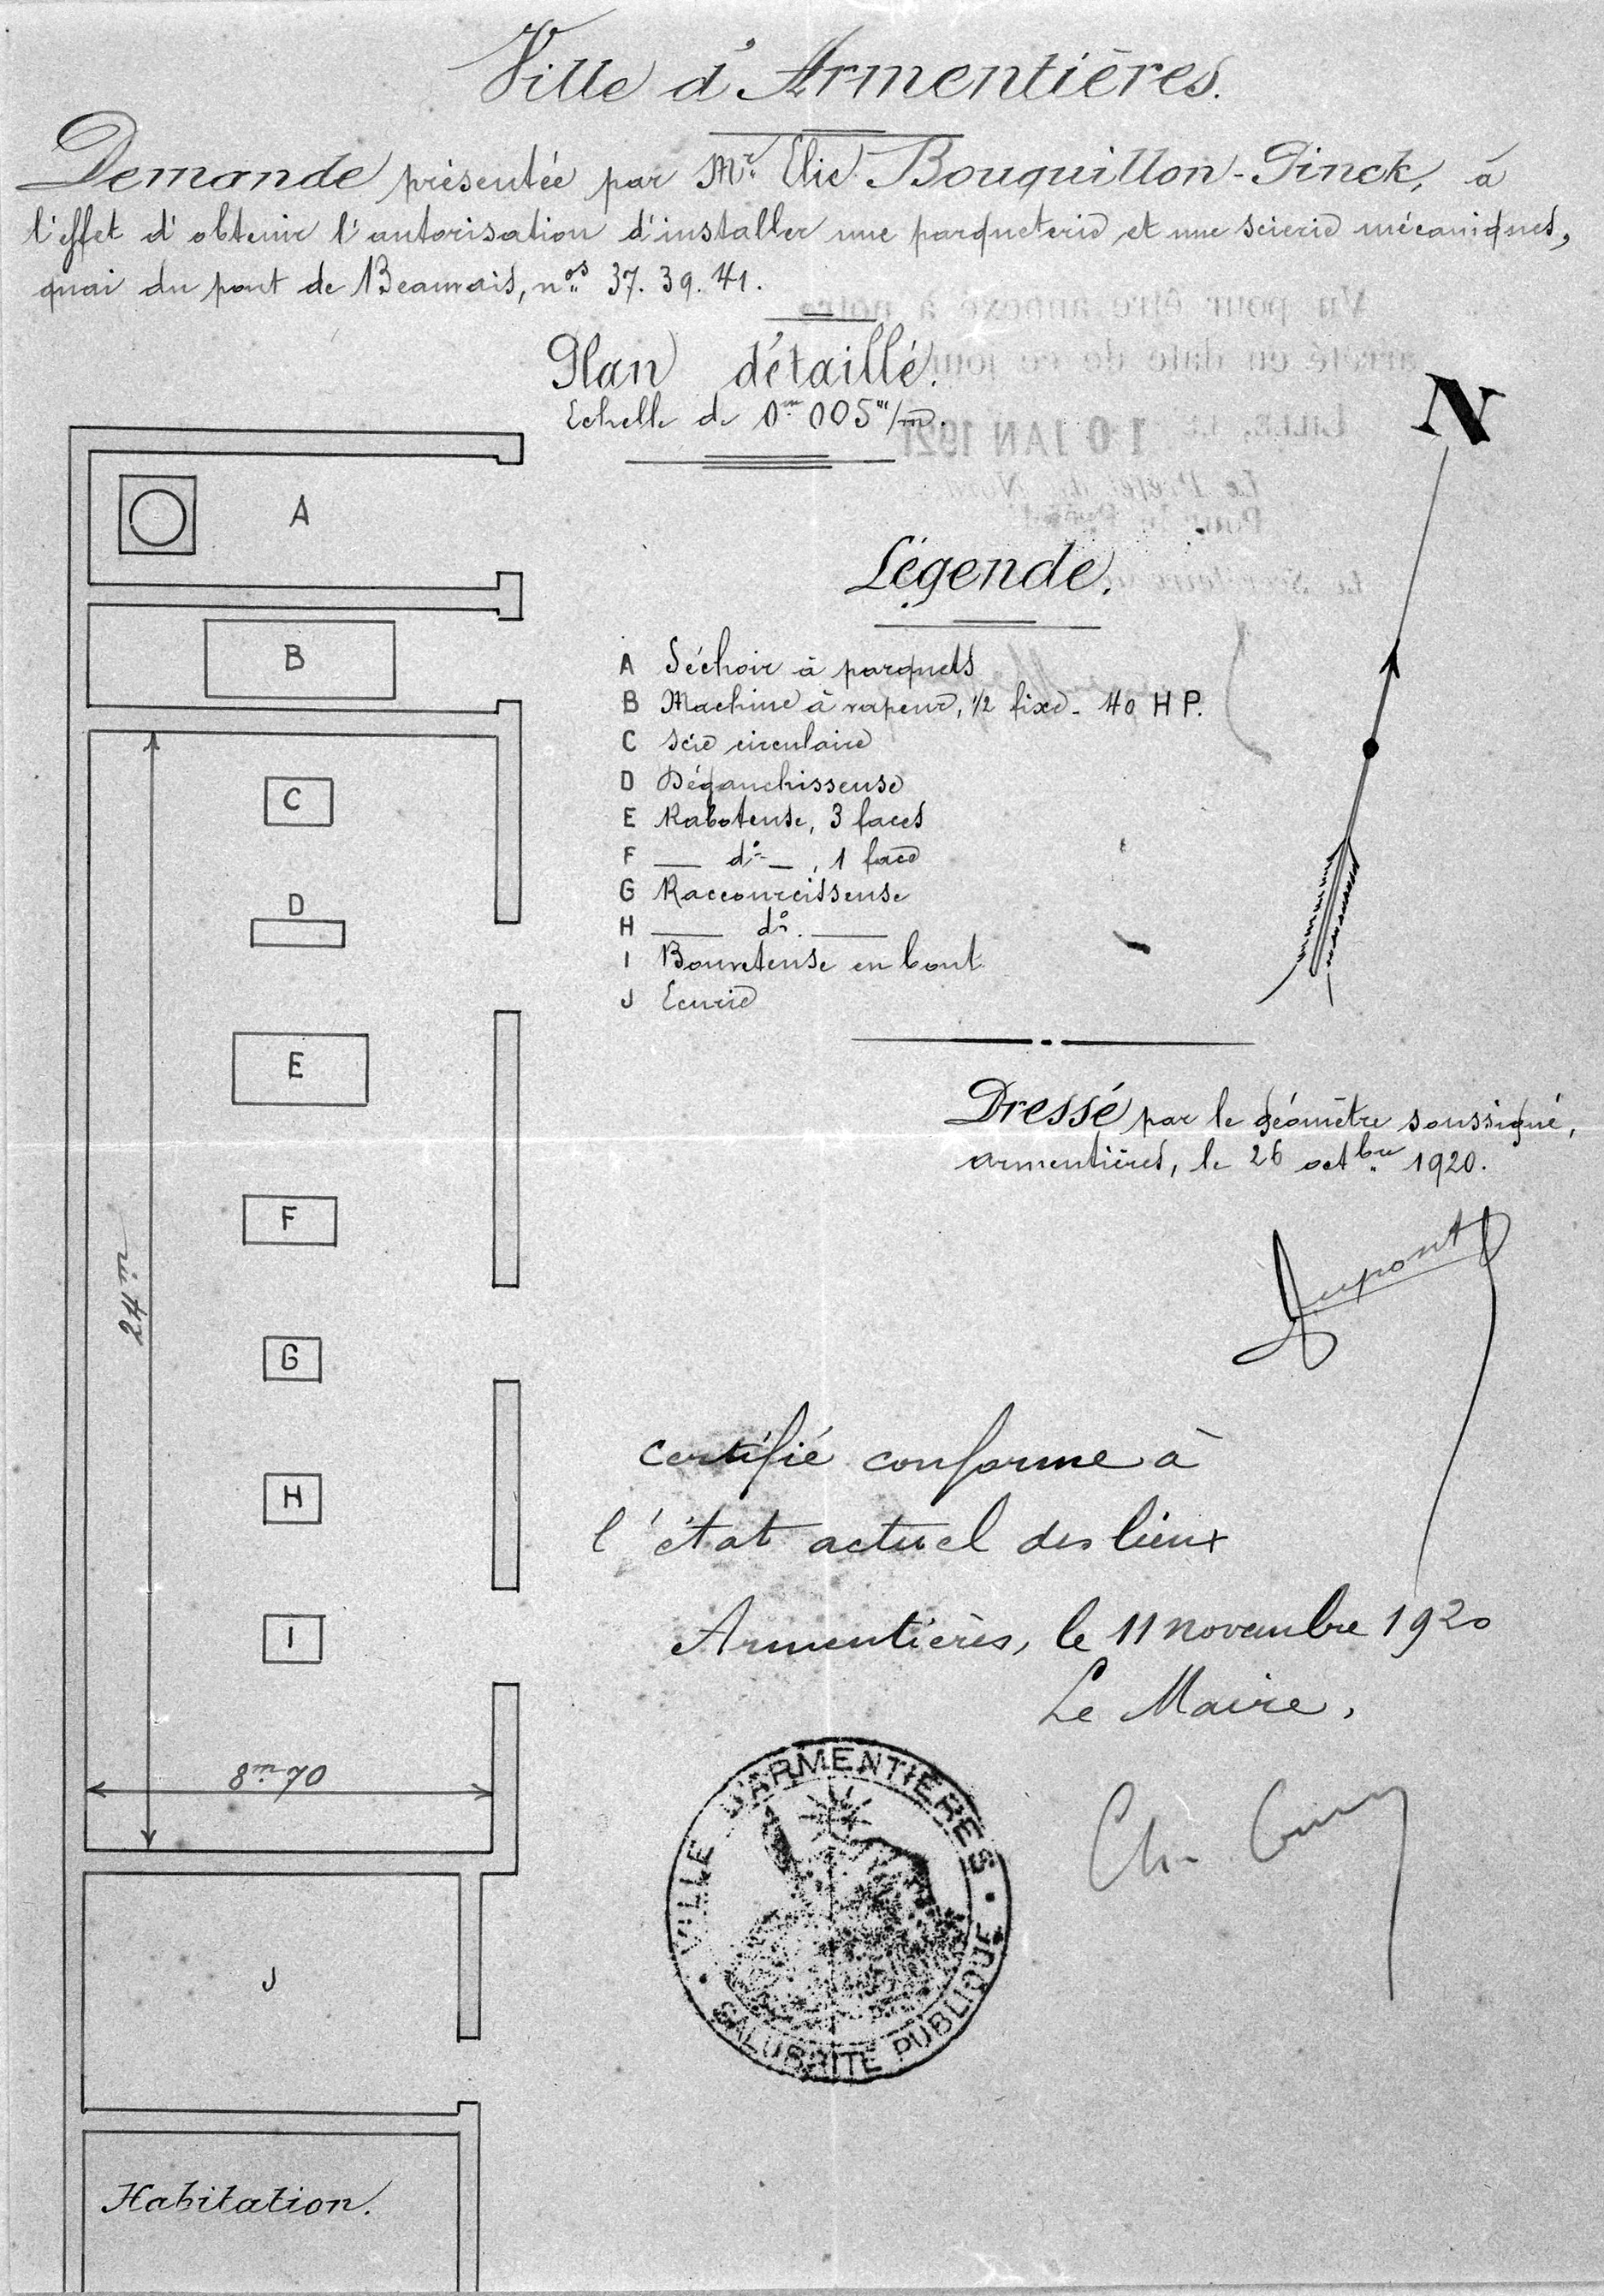 Ville d'Armentières.
Demande présentée par Mr. Elie Bouquillon-Pinck, à
l'effet d'obtenir l'autorisation d'installer une parqueterie et une scierie mécaniques,
quai du pont de Beauvais, nos 37. 39. 41.
Vu pour être annexé à notre
arrêté en date de ce jour
LILLE, LE 10 JAN 1921
Le Préfet du Nord
Pour le Préfet
Plan détaillé.
Echelle de 0m 005m/m.
N
Légende.
A Séchoir à parquets
B Machine à vapeur, 1/2 fixe - 40 HP.
C Scie circulaire
D Dégauchisseuse
E Raboteuse, 3 faces
F — do — , 1 face
G Raccourcisseuse
H — do. —
I Bouveteuse en bout
J Ecurie
A
B
C
D
E
F
G
H
I
24m
8m70
J
Habitation.
Dressé par le géomètre soussigné,
Armentières, le 26 octbre 1920.
Dupont
certifié conforme à
l'état actuel des lieux
Armentières, le 11 novembre 1920
Le Maire,
VILLE D'ARMENTIÈRES
SALUBRITÉ PUBLIQUE